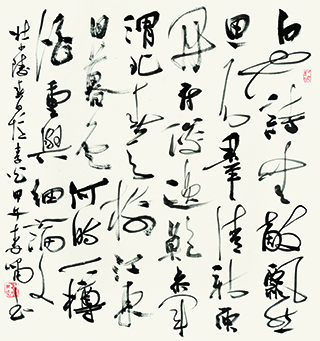 白也詩無敵飄然
思不羣清新庾
開府俊逸鮑參軍
渭北春天樹江東
日暮雲何時一樽
酒重與細論文
杜少陵春日憶李白甲午嘯書